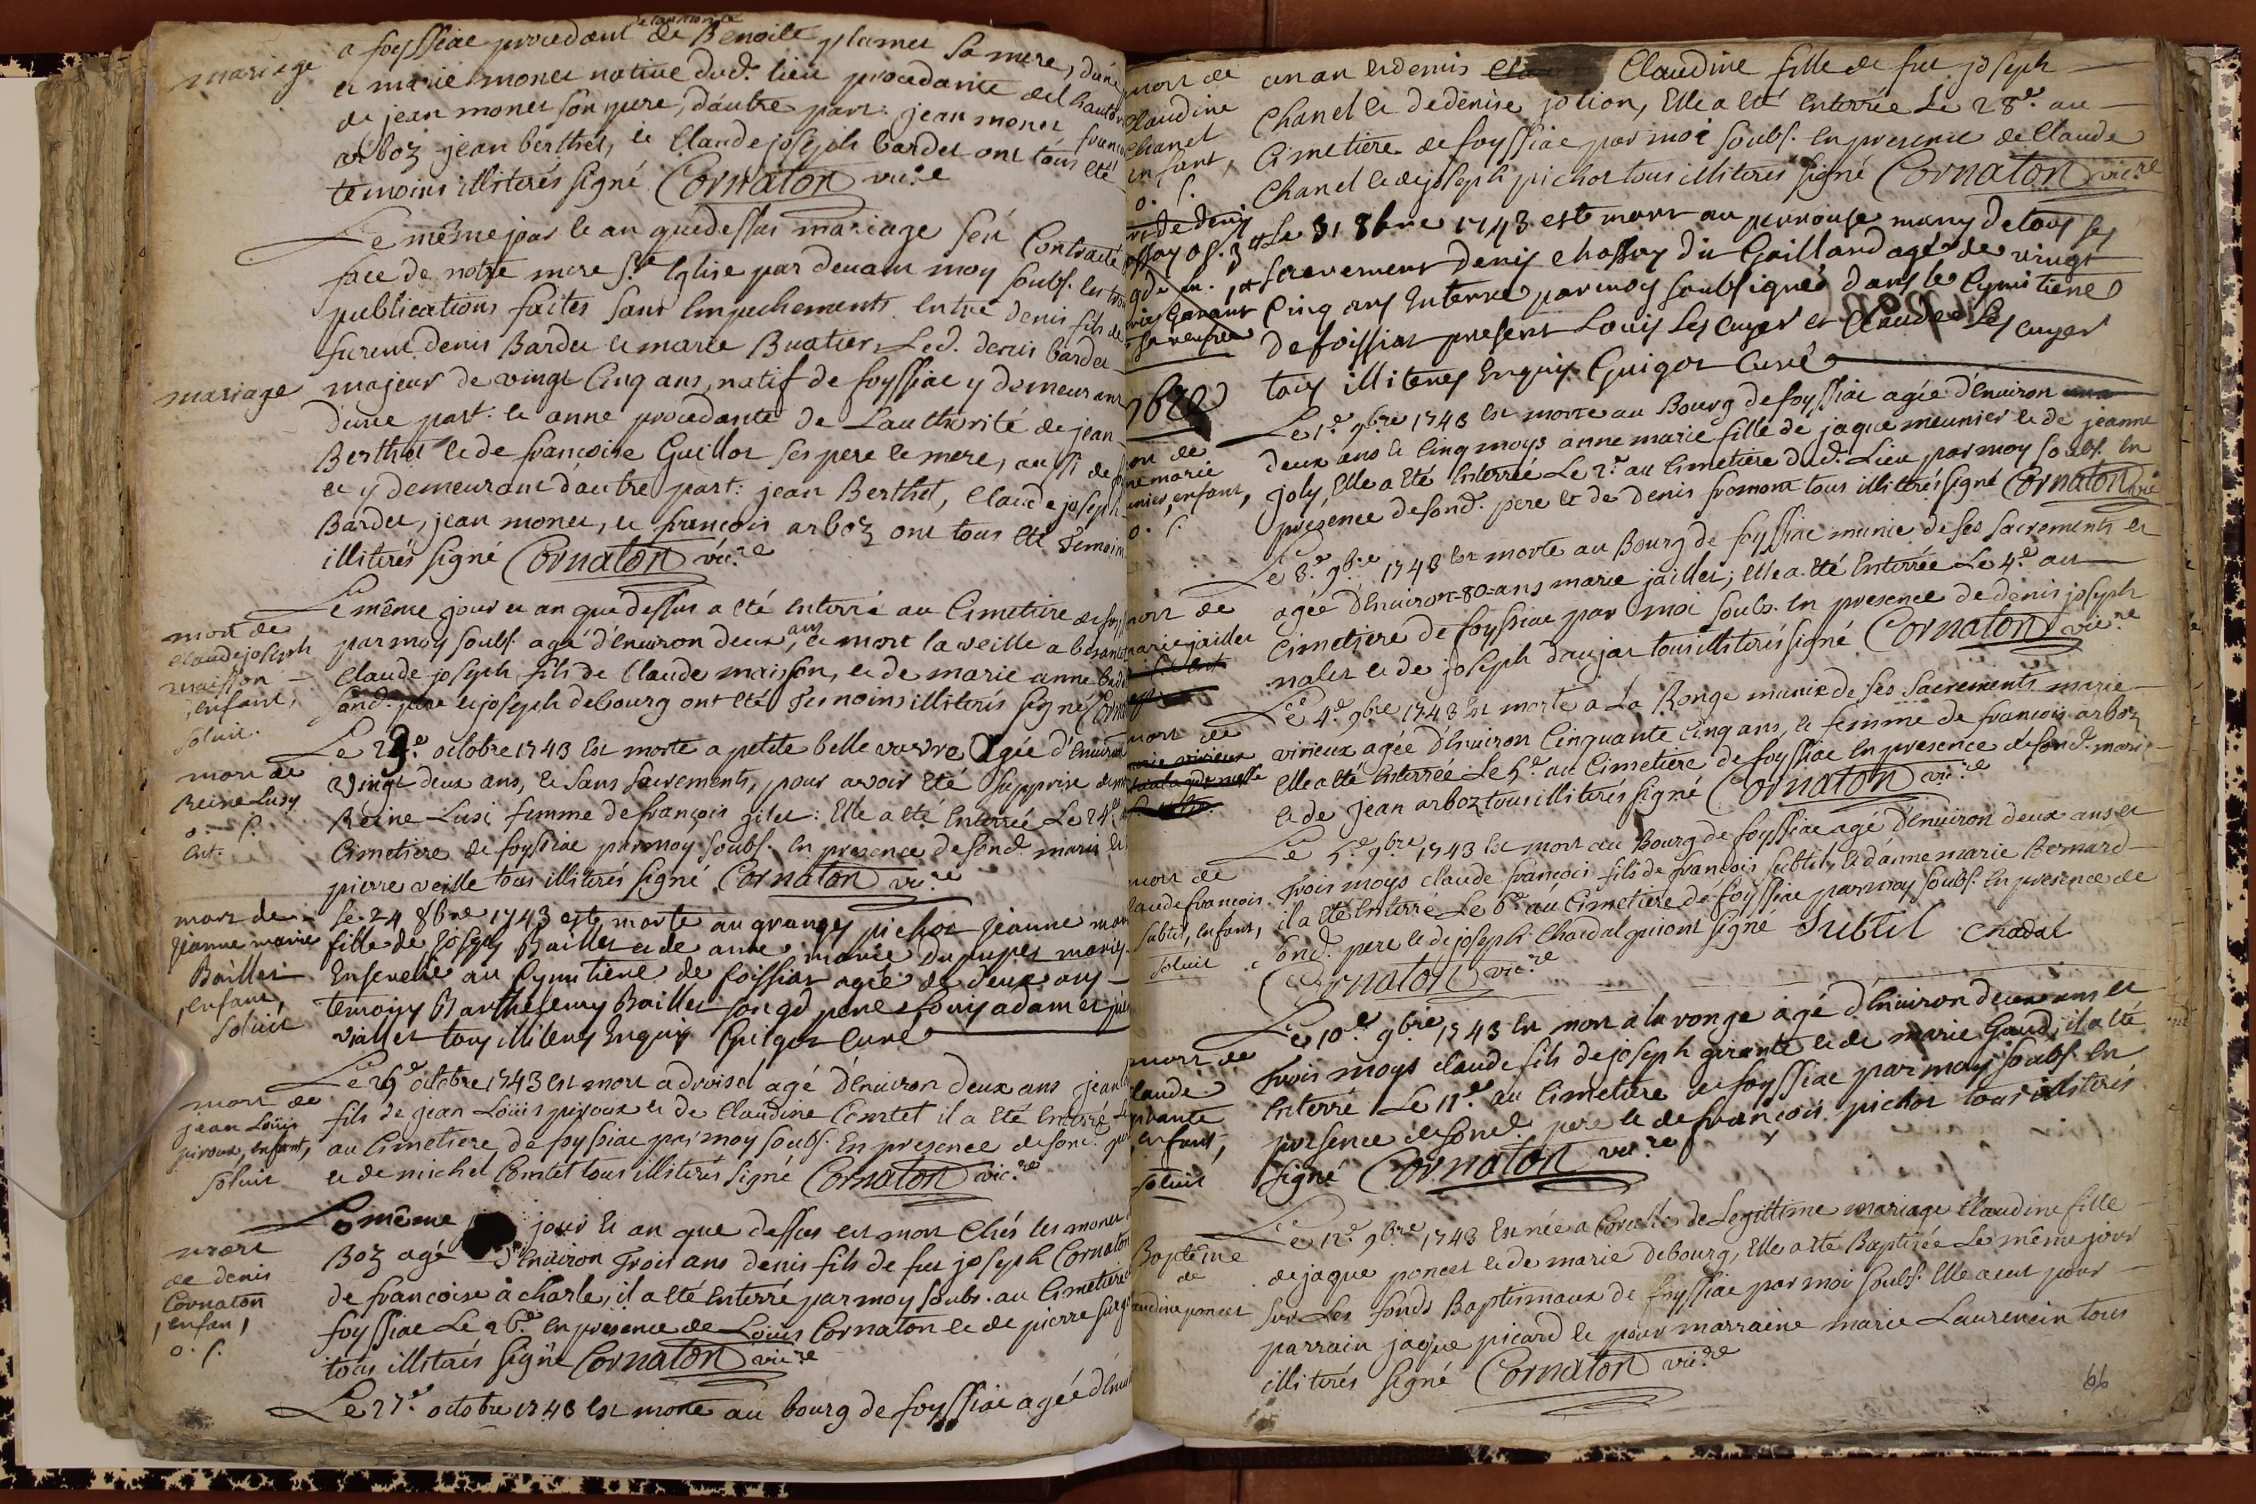 a foyssiac procedant de l'authorité de Benoite sa mere, d'une
mariage
et marie monet native dud. lieu procedante de l'
de jean monet son pere, d'autre part: jean monet
arboz jean berthet, et Claude joseph bardet ont tous été
temoins illiterés signé Cornaton vic.re
Le même jour et an que dessus mariage feu Contracté
face de notre mere S.te Eglise par devant moy soubs. les trois
publications faites sans Empechements entre denis fils de
furent denis Bardet et marie Buatier, Led. denis bardet
mariage
majeur de vingt Cinq ans, natif de foyssiac y demeurant
d'une part: et anne procedante de L'authorité de jean
Berthet et de francoise Guillot ses pere et mere, aussi de
et y demeurant d'autre part: jean Berthet, Claude joseph
Bardet, jean monet, et francois arboz ont tous été temoins
illiterés signé Cornaton vic.re
Le même jour et an que dessus a été enterré au Cimetiere de
mort de
Claude joseph
maisson
enfant,
soluit.
par moy soubs. agé d'Environ deux ans, et mort la veille a
Claude joseph fils de Claude maisson, et de marie anne
fond. pere et joseph debourg ont été temoins illiterés signé
Le 23.e octobre 1743 est morte a petite belle vavre agée d'Environ
mort de
Reine Lusy
o. s.
Ent.
vingt deux ans, et sans sacrements, pour avoir été supprise de
Reine Lusi femme de françois gilet: Elle a été Enterrée Le 24.e
Cimetiere de foyssiac par moy soubs. En presence de fond. mari et
pierre veille tous illiterés signé Cornaton vic.re
mort de
jeanne marie
Baillet
enfant,
soluit
Le 24 8bre 1743 este morte au granges pichot jeanne
fille de joseph Baillet et de anne marie dupupet
Ensevelie au Cymitiere de foissiat agée de deux ans
temoins Barthelemy Baillet son gd pere Louis adam et
viallet tous illiteres Enquis Guigot Curé
Le 26.e octobre 1743 est mort a droisel agé d'Environ deux ans jean
mort de
jean Loüis
piroux, enfant,
soluit
fils de jean Loüis piroux et de Claudine Comtet il a été Enterré
au Cimetiere de foyssiac par moy soubs. En presence de fond.
et de michel Comtet tous illiterés signé Cornaton vic.re
Le même jour et an que dessus est mort Chés les monet
mort
de denis
Cornaton
, enfan,
o. s.
Boz agé d'Environ trois ans denis fils de feu joseph Cornaton
de francoise a charle, il a été Enterré par moy soubs. au Cimetiere
foyssiac Le 26.e En presence de Loüis Cornaton et de pierre
tous illiterés signé Cornaton vic.re
Le 27.e octobre 1743 est morte au bourg de foyssiac agée
mort de
Claudine
Chanel
enfant,
o. s.
un an et demis Claudine fille de feu joseph
Chanel et de denise jolion, Elle a été Enterrée Le 28.e au
Cimetiere de foyssiac par moi soubs. En presence de Claude
Chanel et de joseph pichot tous illiterés signé Cornaton vic.re
Le 31 8bre 1743 este mort au perrouse muny de tous ses
sacrement denis chossoy dit Gailland agé de vingt
Cinq ans Enterré par moy soubsigné dans le Cymitiere
de foissiat present Louis Lescuyer et Claude Lescuyer
tous illiteres Enquis Guigot Curé
9bre
Le 1.e 9bre 1743 est morte au Bourg de foyssiac agée d'Environ
deux ans et Cinq moys anne marie fille de jaque meunier et de jeanne
joly, Elle a été Enterrée Le 2.e au Cimetiere dud. Lieu par moy soubs. En
presence de fond. pere et de denis fromont tous illiterés signé Cornaton vic.
o. s.
Le 3.e 9bre 1743 est morte au Bourg de foyssiac munie de ses sacrements et
mort de
marie jaillet
agée d'Environ 80 ans marie jaillet; Elle a été Enterrée Le 4.e au
Cimetiere de foyssiac par moi soubs. En presence de denis joseph
nalet et de joseph daujat tous illiterés signé Cornaton vic.re
Le 4.e 9bre 1743 est morte a La Ronge munie de ses sacrements marie
mort de
virieux agée d'Environ Cinquante Cinq ans, et femme de francois arboz
Elle a été Enterrée Le 5.e au Cimetiere de foyssiac En presence de fond. mari
et de Jean arboz tous illiterés signé Cornaton vic.re
Le 5.e 9bre 1743 est mort au Bourg de foyssiac agé d'Environ deux ans et
mort de
Claude francois
subtil, enfant,
soluit
trois moys claude françois fils de françois subtil, et d'anne marie Bernard
il a été Enterré Le 6.e au Cimetiere de foyssiac par moy soubs. En presence de
fond. pere et de joseph Chardal qui ont signé Subtil Chadal
Cornaton vic.re
Le 10.e 9bre 1743 est mort a la ronge agé d'Environ deux ans et
mort de
Claude
girante
, enfant,
soluit
trois moys claude fils de joseph girante et de marie Gaud, il a été
Enterré Le 11.e au Cimetiere de foyssiac par moy soubs. En
presence de fond. pere et de francois pichot tous illiterés
signé Cornaton vic.re
Le 12.e 9bre 1743 Est née a de Legittime mariage Claudine fille
Bapteme
de
Claudine poncet
de jaque poncet et de marie debourg, Elle a été Baptisée Le même jour
sur Les fonds Baptismaux de foyssiac par moi soubs. Elle a eut pour
parrain jaque picard et pour marraine marie Laurencin tous
illiterés signé Cornaton vic.re
66